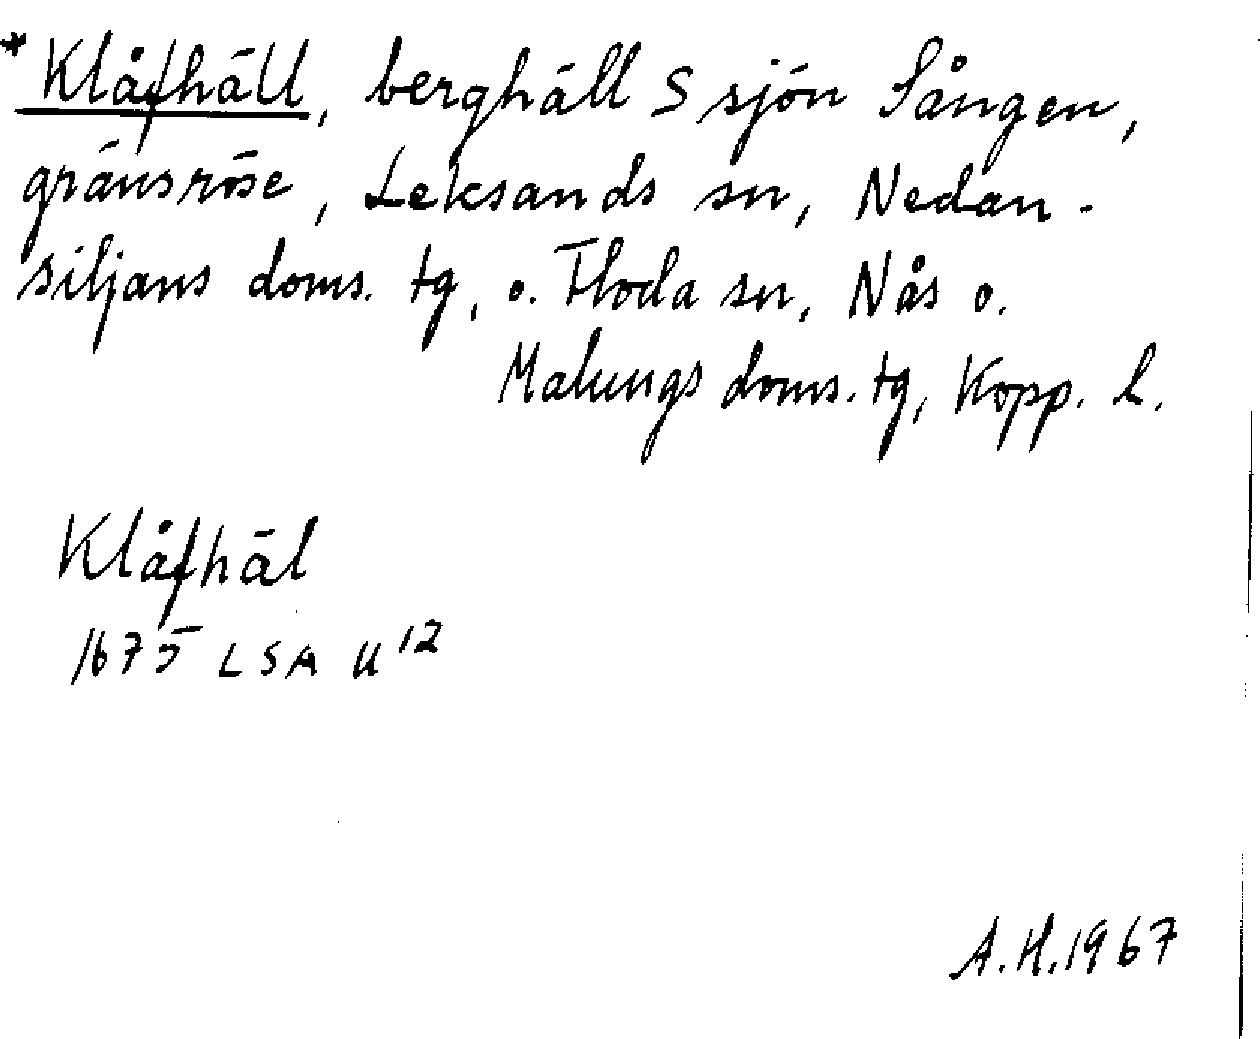 *Klåfhäll, berghäll S sjön Sången,
gränsröse, Leksands sn, Nedan-
siljans doms. tg, o. Floda sn, Nås o.
Malungs doms. tg, Kopp. l.
Klåfhäl
1675 LSA U 12
A.H. 1967